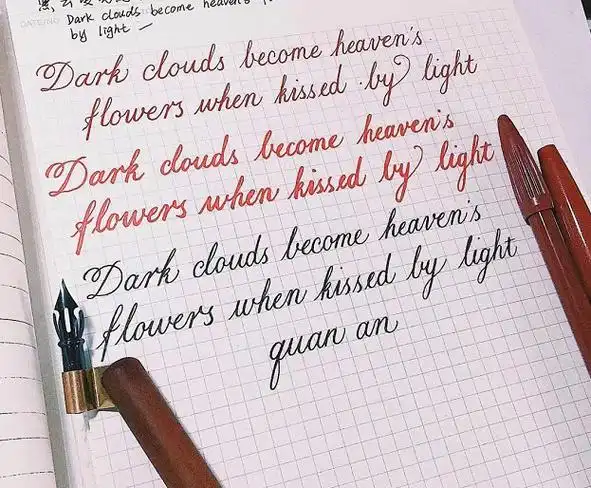 DATE/NO
Dark clouds become heaven's
by light —
Dark clouds become heaven's
flowers when kissed by light
Dark clouds become heaven's
flowers when kissed by light
Dark clouds become heaven's
flowers when kissed by light
quan an